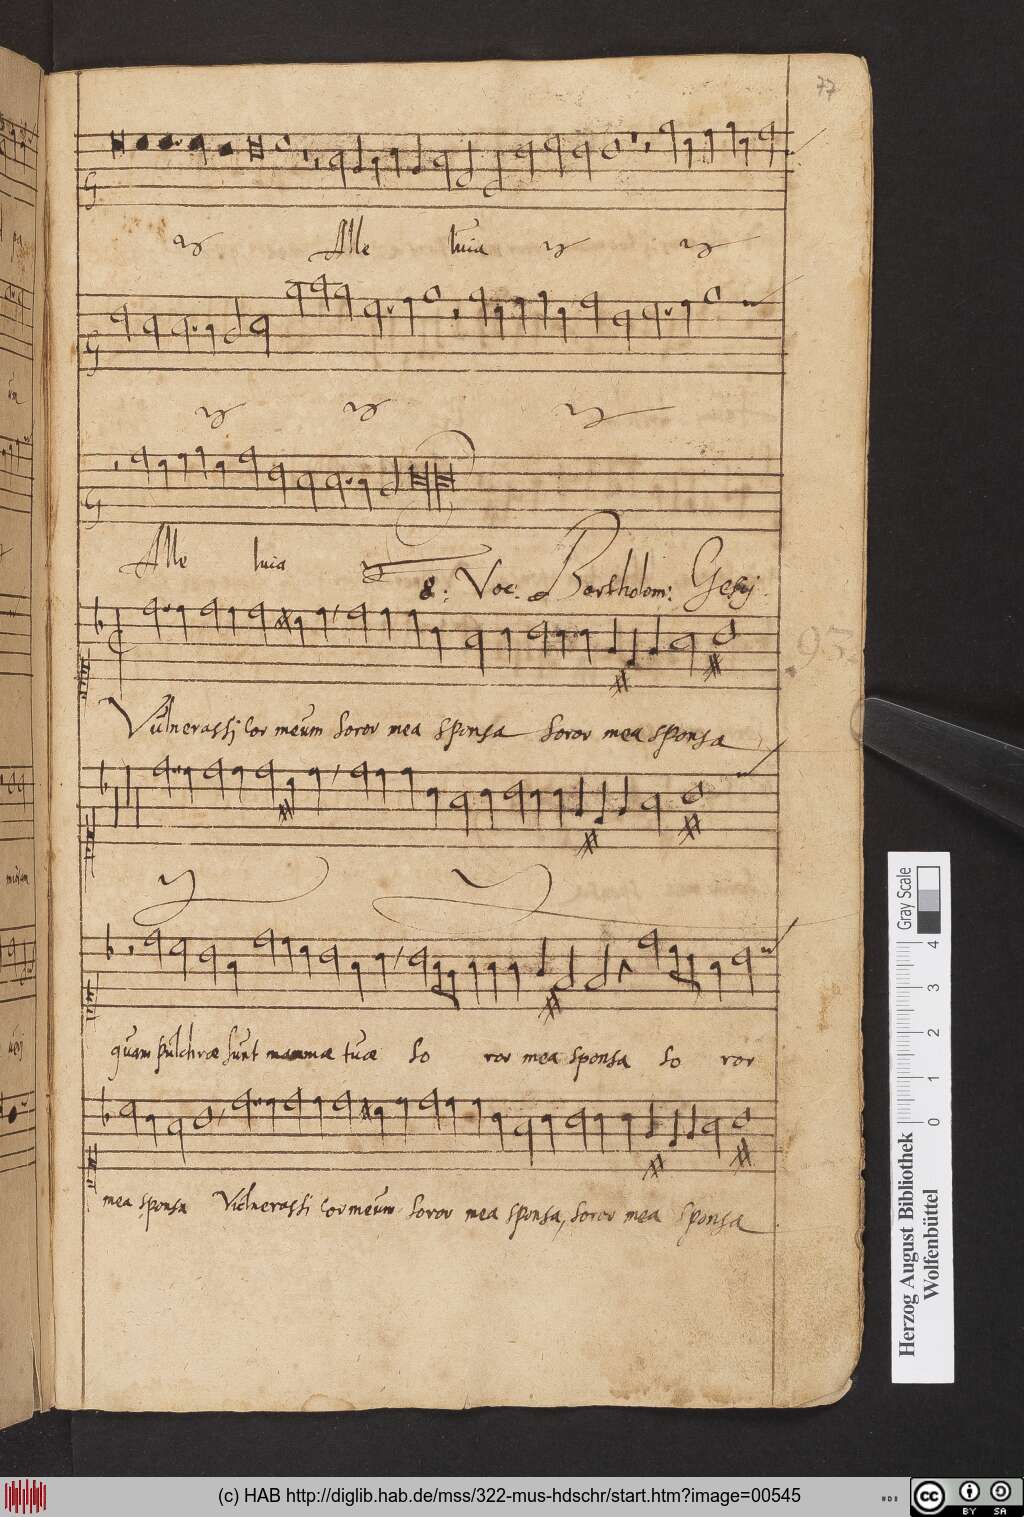 77
Alle luia
Alle luia
8. Voc: Bartholom: Gesij
93.
Vulnerassi cor meum soror mea sponsa soror mea sponsa
quam pulchrae sunt mammae tuae so ror mea sponsa so ror
mea sponsa Vulnerassi cor meum soror mea sponsa, soror mea sponsa
Gray Scale
0 1 2 3 4
Herzog August Bibliothek
Wolfenbüttel
(c) HAB http://diglib.hab.de/mss/322-mus-hdschr/start.htm?image=00545
cc BY SA